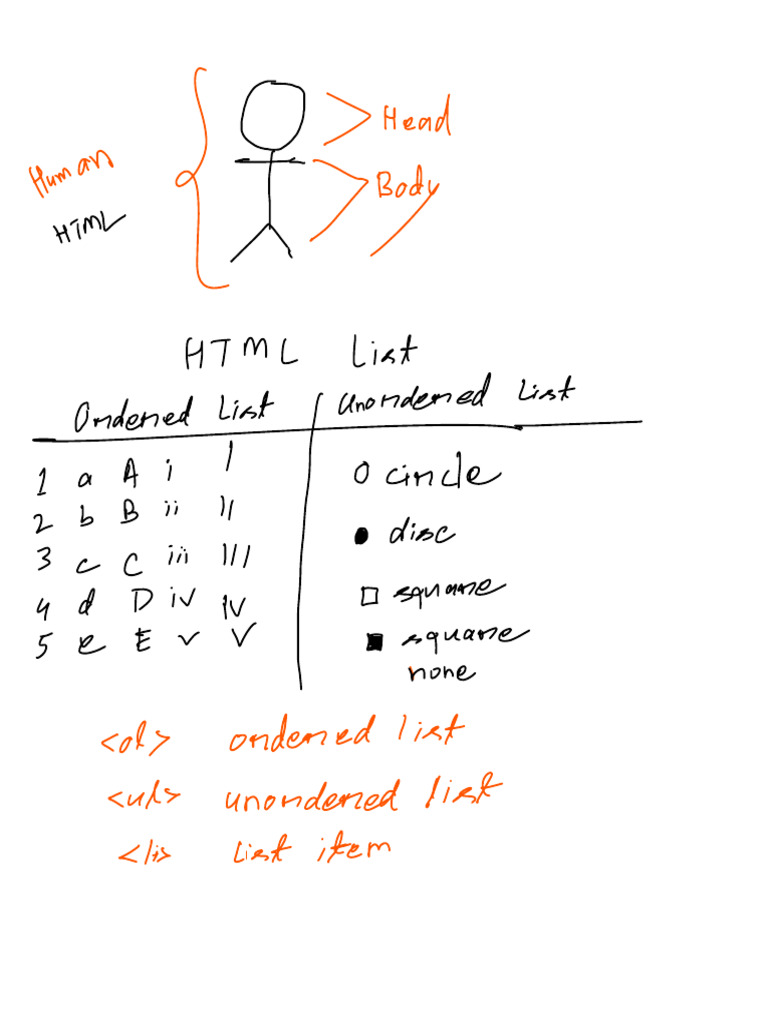 Head
Human
Body
HTML
HTML List
Ordered List Unordered List
1 a A i I
2 b B ii II
3 c C iii III
4 d D iv IV
5 e E v V
O circle
● disc
□ square
■ square
none
<ol> ordered list
<ul> unordered list
<li> list item